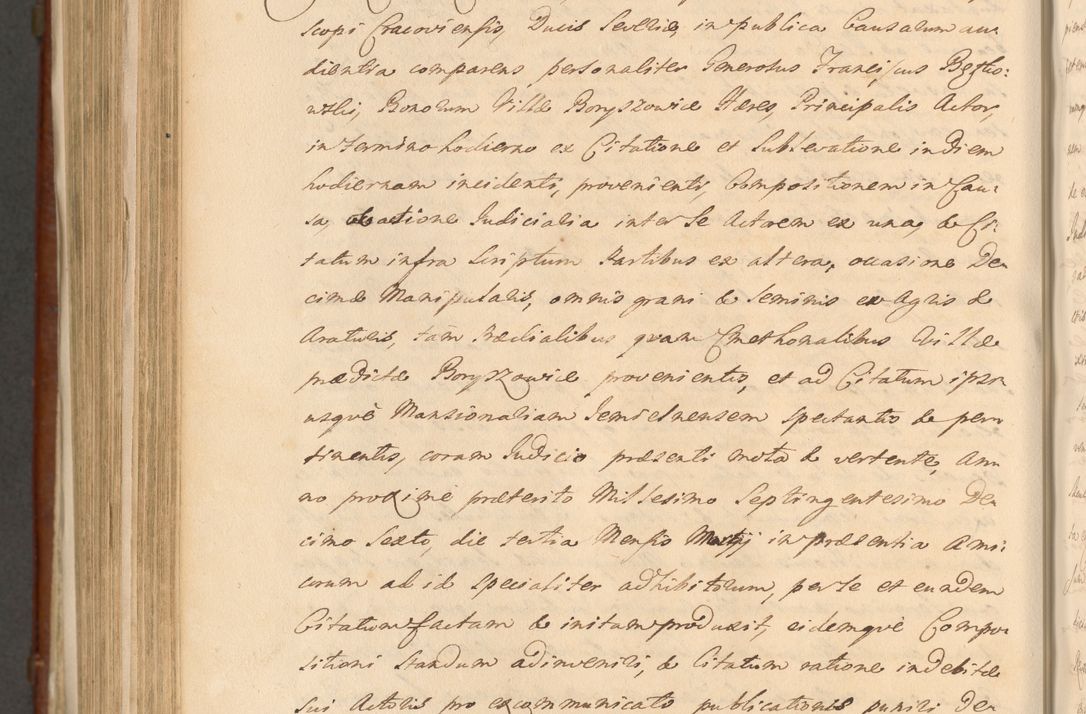 scopi Cracoviensis, Ducis Severiæ, in publica Causarum au
dientia comparens personaliter Generosus Franciscus
Bonorum Villæ Boryszowice Hæres, Principalis Actor,
in termino hodierno ex Citatione et Sublevatione in diem
hodiernam incidenti, provenienti, Compositionem in Cau
sa, ratione Judicialia inter Se Actorem ex una, & Ci
tatum infra Scriptum Partibus ex altera, occasione De
cimæ Manipularis, omnis grani & seminis ex Agris &
Araturis, tam Prædialibus quam Cmethonalibus Villæ
prædictæ Boryszowice provenientis, et ad Citatum ipsu
usquè Mansionariam spectantis & per
tinentis, coram Judicio præsenti mota & vertente, An
no proximè præterito Millesimo Septingentesimo De
cimo Sexto, die tertia Mensis Martij in præsentia Ami
corum ad id specialiter adhibitorum, per se et eundem
Citatum factam & initam produxit, eidemquè Compo
sitioni standum adinveniri, & Citatum ratione indebitæ
sui Actoris pro excommunicato publicationis puniri De